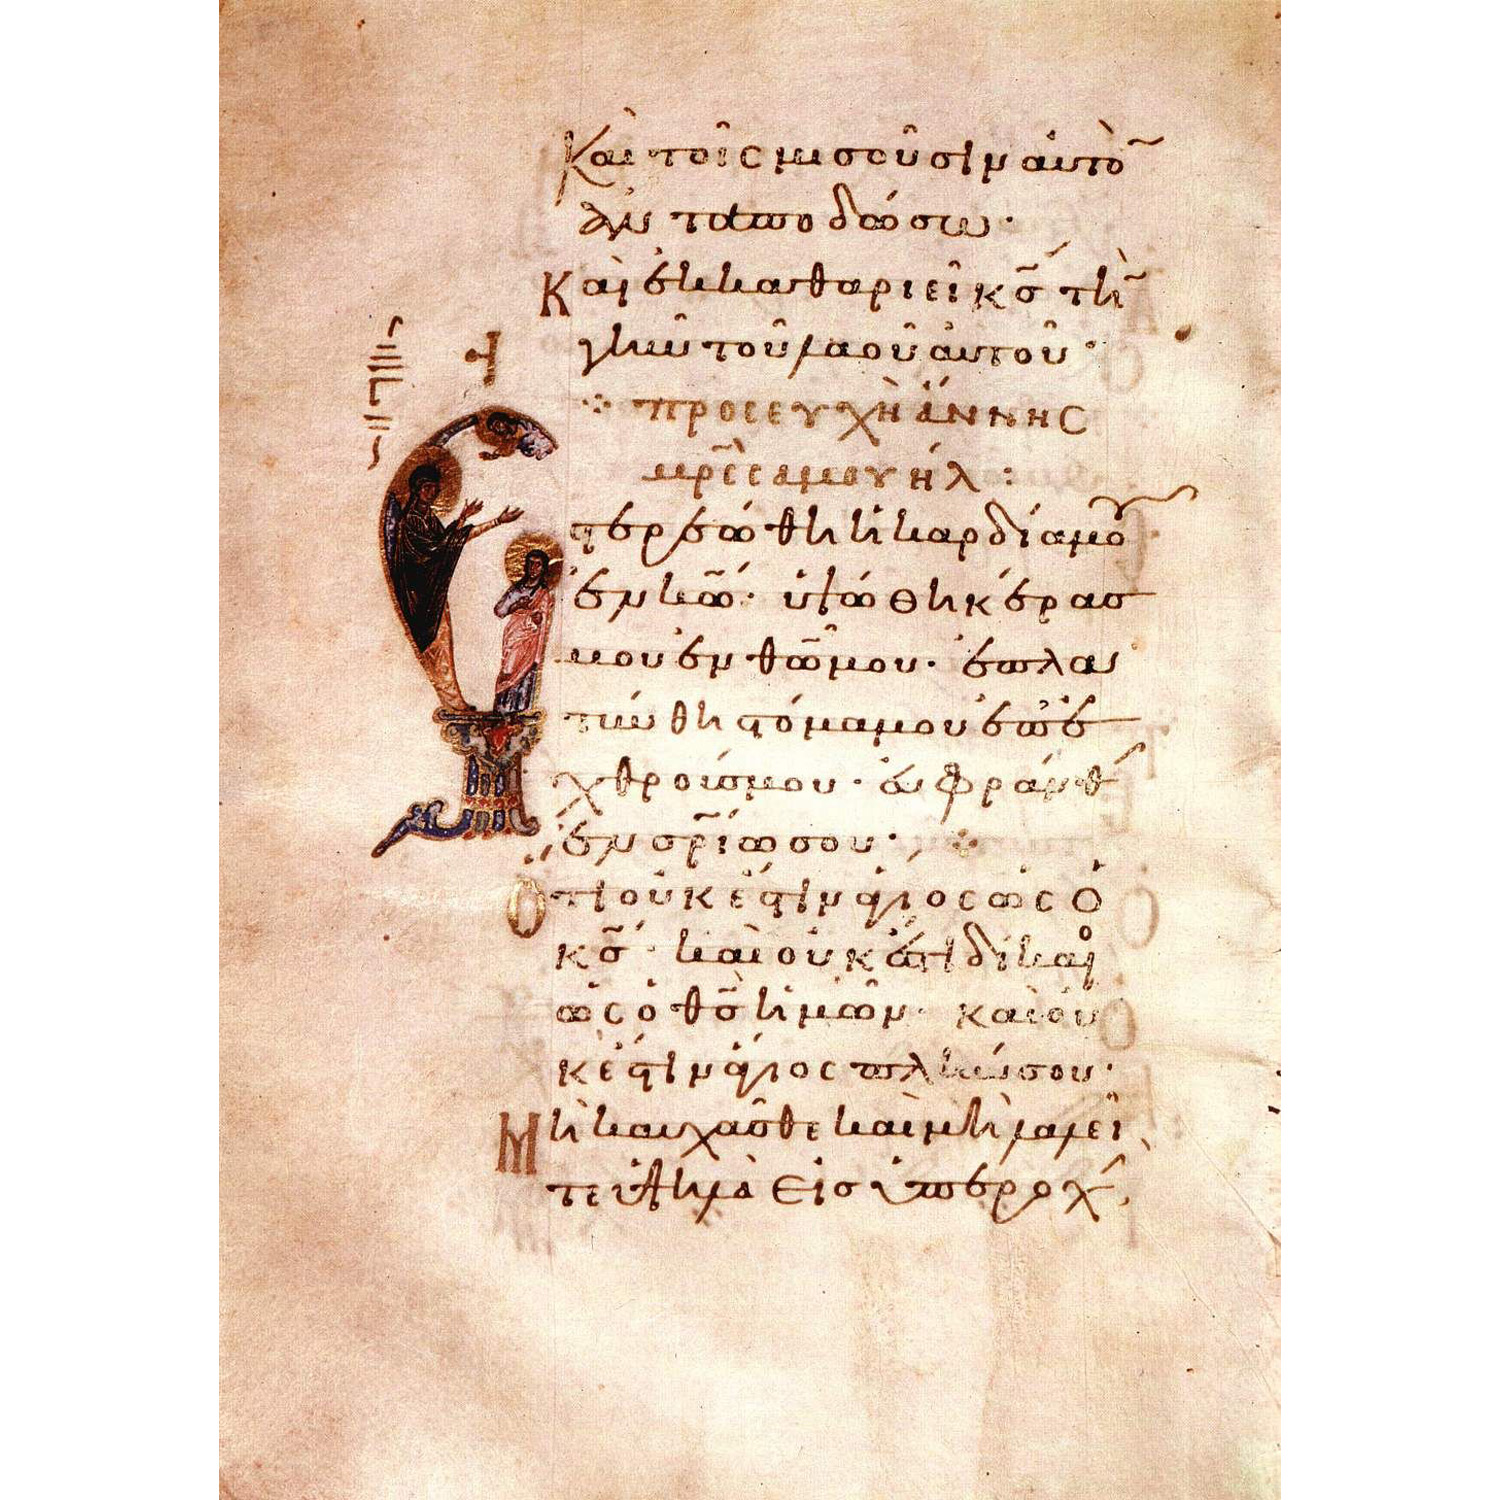 Καὶ τοῖς μισοῦσὶν αὐτὸ͂
ἀνταποδώσω·
Καὶ ἐκκαθαριεῖ κ̅ς̅ τὴ͂
γῆν τοῦ λαοῦ αὐτοῦ·
προσευχὴ ἄννης
μρ̅ς̅ σαμουήλ:
Ἐστερεώθη ἡ καρδία μου
ἐν κ̅ω̅· ὑψώθη κέρας
μου ἐν θ̅ω̅ μου· ἐπλα
τύνθη στόμα μου ἐπὶ ἐ
χθρούς μου· εὐφράνθ
ἐν σ̅ρ̅ίω σου·
Ὅτι οὐκ ἔστιν ἅγιος ὡς ὁ
κ̅ς̅· καὶ οὐκ ἔστι δίκαιο
ὡς ὁ θ̅ς̅ ἡμῶν· καὶ οὐ
κ ἔστιν ἅγιος πλήν σου·
Μὴ καυχᾶσθε καὶ μὴ λαλεῖ
τε ὑψηλὰ εἰς ὑπεροχ